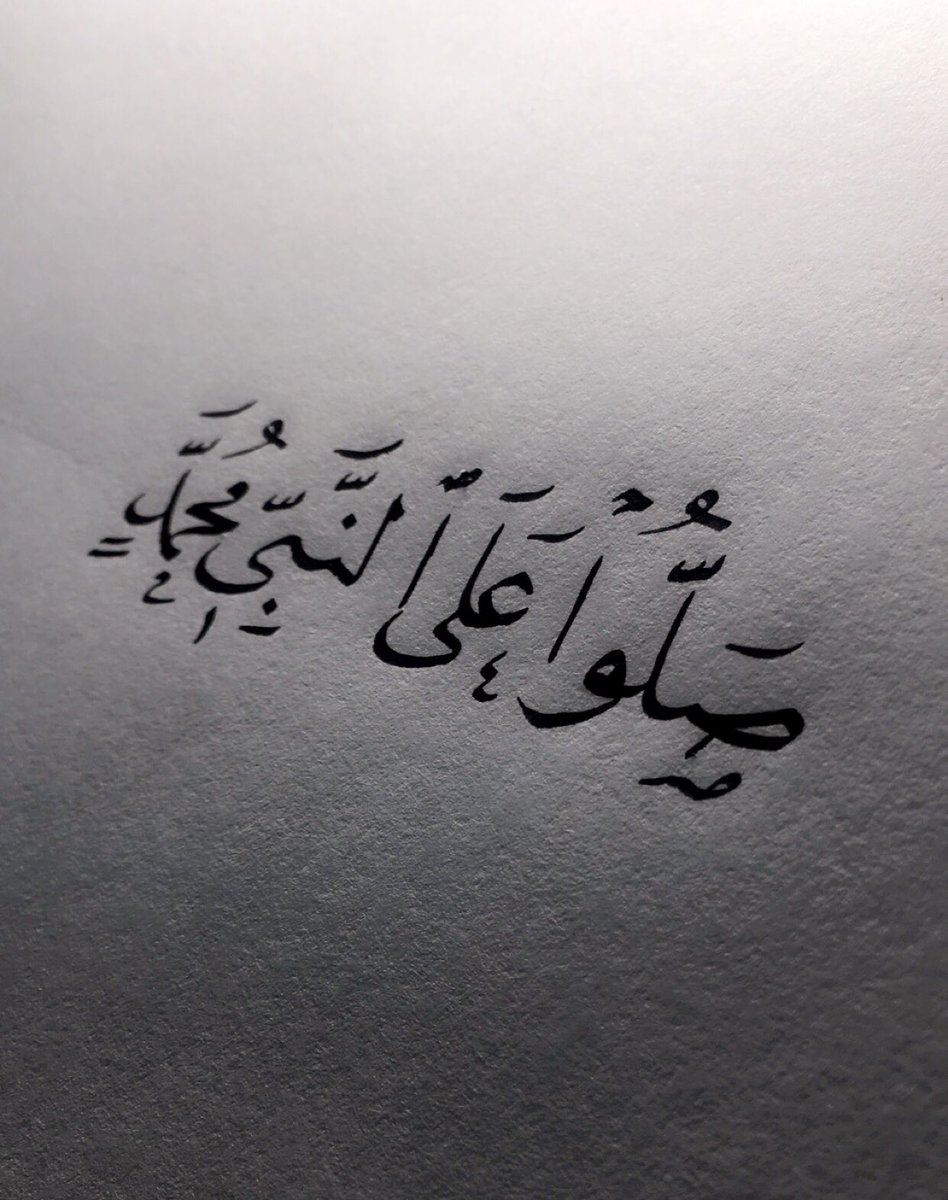 صَلُّوا عَلَى ٱلنَّبِيِّ مُحَمَّدٍ